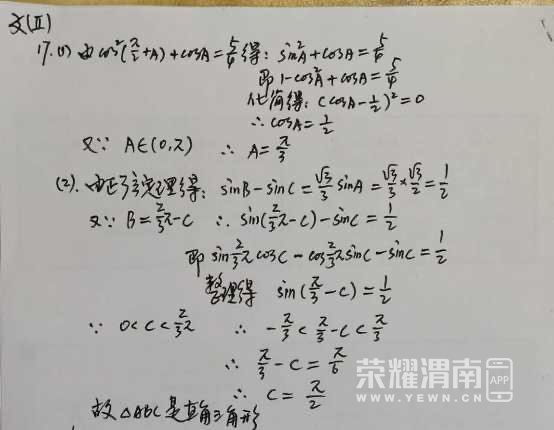 文(Ⅱ)
17.(1) 由cos²(π/2+A)+cosA=5/4得: sin²A+cosA=5/4
即 1-cos²A+cosA=5/4
化简得: (cosA-1/2)²=0
∴cosA=1/2
又∵ A∈(0,π) ∴ A=π/3
(2). 由正弦定理得: sinB-sinC=√3/3 sinA=√3/3×√3/2=1/2
又∵ B=2/3π-C ∴ sin(2/3π-C)-sinC=1/2
即 sin2/3π cosC-cos2/3π sinC-sinC=1/2
整理得 sin(π/3-C)=1/2
∵ 0<C<2/3π ∴ -π/3<π/3-C<π/3
∴ π/3-C=π/6
∴ C=π/2
故△ABC是直角三角形
荣耀渭南 APP
WWW.YEWN.CN